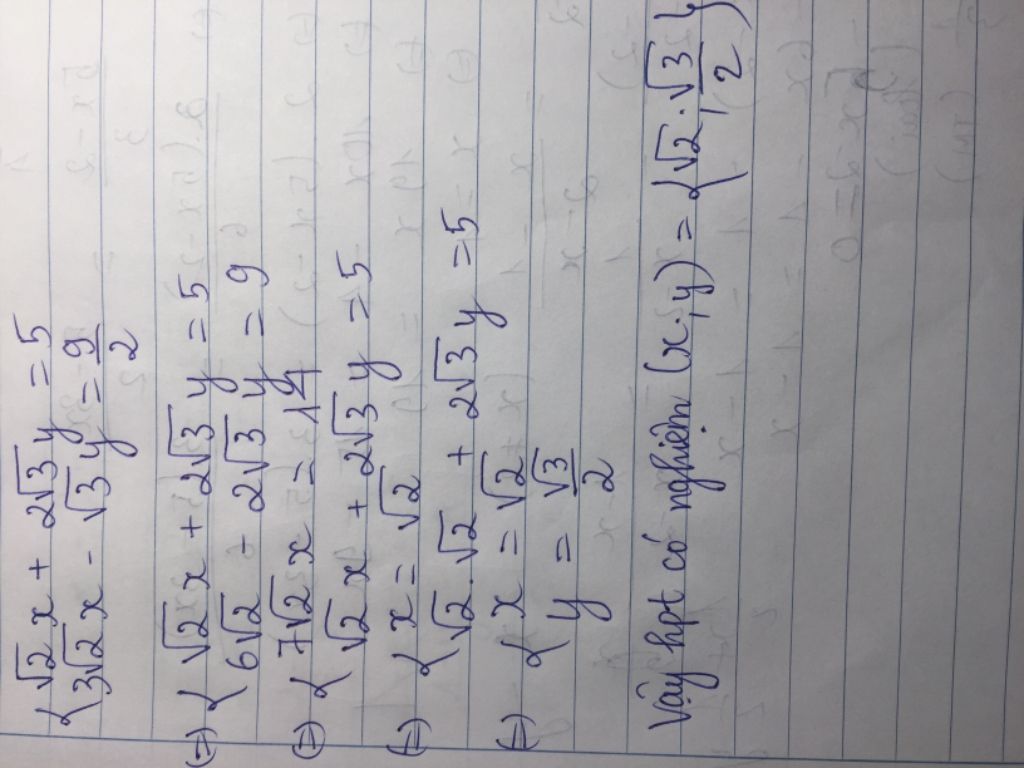 { √2x + 2√3y = 5
3√2x - √3y = 9/2
(=) { √2x + 2√3y = 5
6√2 - 2√3y = 9
(=) { 7√2x = 14
√2x + 2√3y = 5
(=) { x = √2
√2.√2 + 2√3y = 5
(=) { x = √2
y = √3/2
Vậy hpt có nghiệm (x,y) = {√2, √3/2}